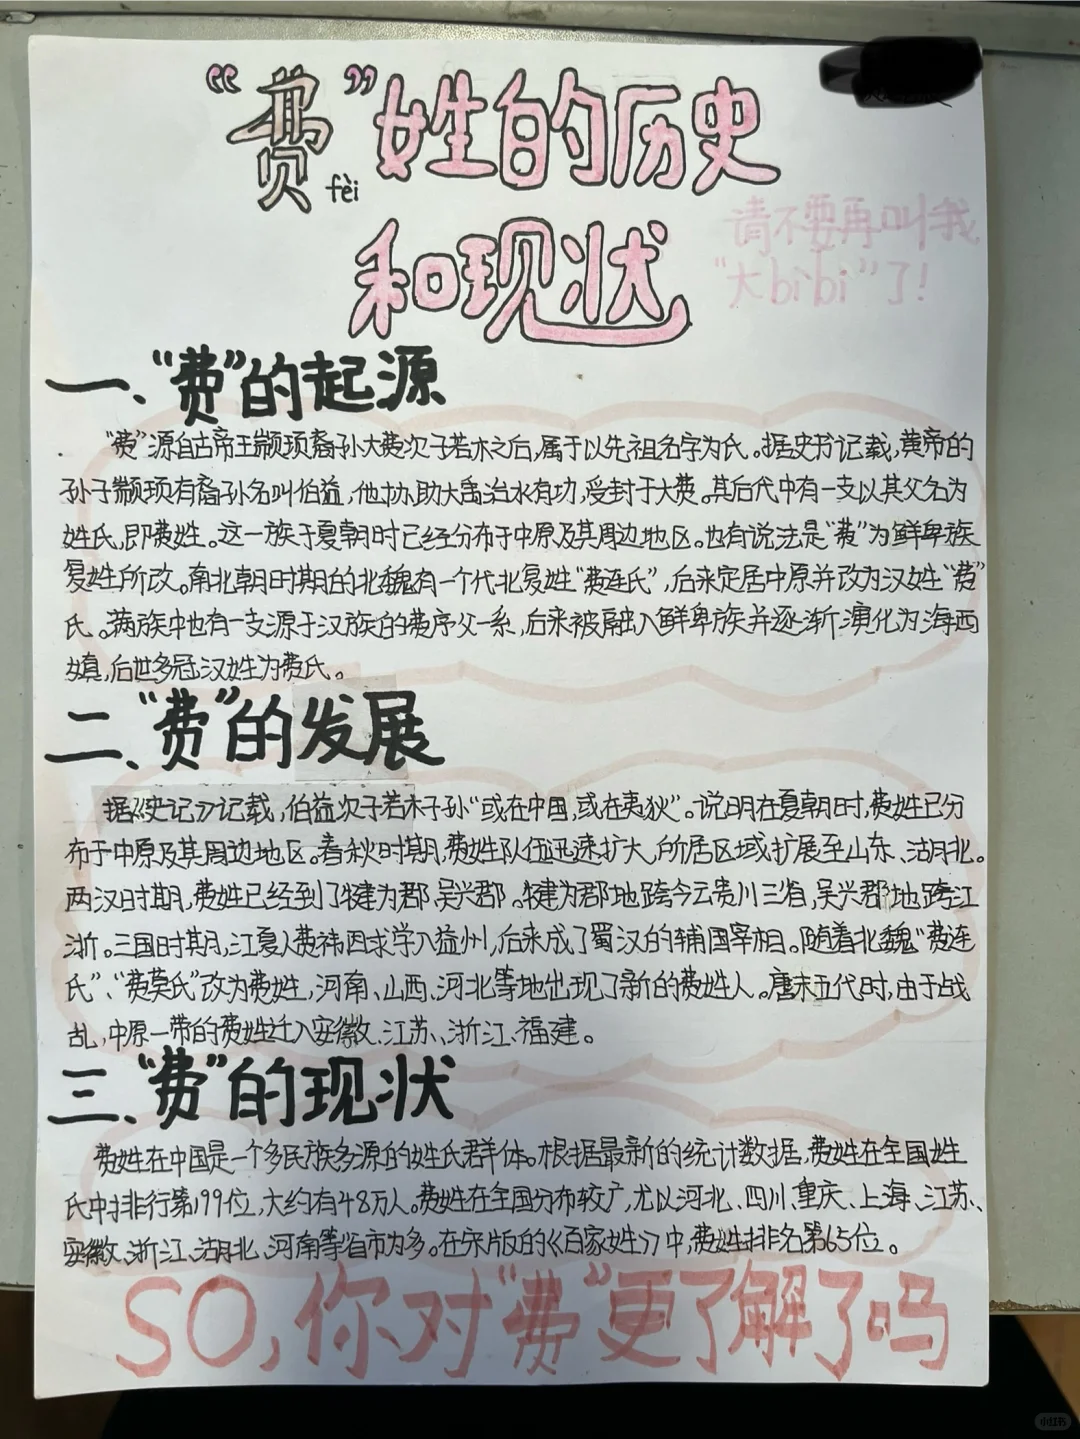 “费”姓的历史
fèi
和现状
请不要再叫我
“大bibi”了!
一、“费”的起源
“费”源自古帝王颛顼裔孙大费次子若木之后,属于以先祖名字为氏。据史书记载,黄帝的
孙子颛顼有裔孙名叫伯益,他协助大禹治水有功,受封于大费。其后代中有一支以其父名为
姓氏,即费姓。这一族于夏朝时已经分布于中原及其周边地区。也有说法是“费”为鲜卑族
复姓所改。南北朝时期的北魏有一个代北复姓“费连氏”,后来定居中原并改为汉姓“费”
氏。满族中也有一支源于汉族的费序父一系,后来被融入鲜卑族并逐渐演化为海西
女真,后世多冠汉姓为费氏。
二、“费”的发展
据《史记》记载,伯益次子若木子孙“或在中国,或在夷狄”。说明在夏朝时,费姓已分
布于中原及其周边地区。春秋时期,费姓队伍迅速扩大,所居区域扩展至山东、湖北。
两汉时期,费姓已经到了犍为郡、吴兴郡。犍为郡地跨今云贵川三省,吴兴郡地跨江
浙。三国时期,江夏人费祎因求学入益州,后来成了蜀汉的辅国宰相。随着北魏“费连
氏”、“费莫氏”改为费姓,河南、山西、河北等地出现了新的费姓人。唐末五代时,由于战
乱,中原一带的费姓迁入安徽、江苏、浙江、福建。
三、“费”的现状
费姓在中国是一个多民族多源的姓氏群体。根据最新的统计数据,费姓在全国姓
氏中排行第199位,大约有48万人。费姓在全国分布较广,尤以河北、四川、重庆、上海、江苏、
安徽、浙江、湖北、河南等省市为多。在宋版的《百家姓》中,费姓排名第65位。
SO,你对“费”更了解了吗
小红书